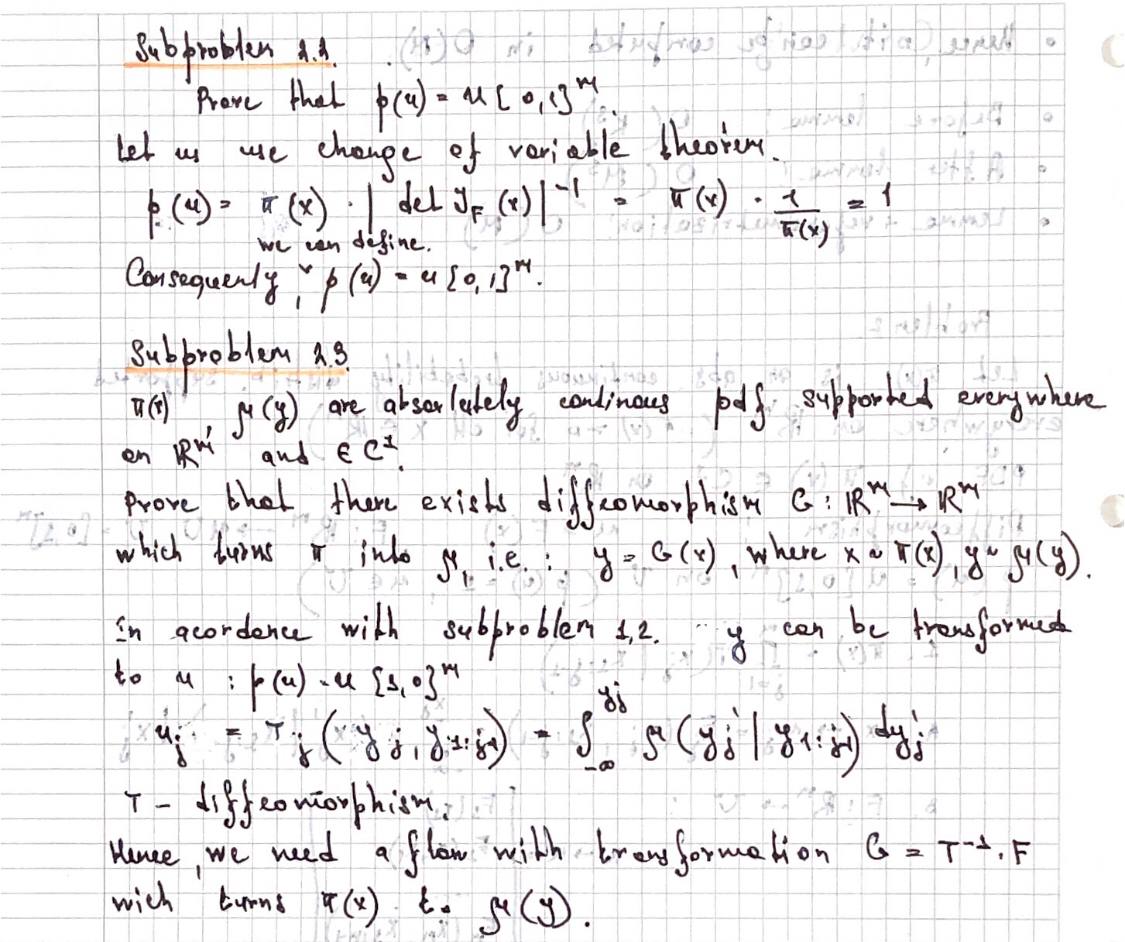 Subproblem 2.2.
Prove that p(u) = U[0,1]^m
Let us use change of variable theorem.
p(u) = π(x) · |det J_F(x)|^{-1} = π(x) · 1/π(x) = 1
we can define.
Consequently, p(u) = U[0,1]^m.
Subproblem 2.3
π(x) μ(y) are absorlutely continous pdf supported everywhere
on ℝ^m and ∈ C^1.
Prove that there exists diffeomorphism G: ℝ^m → ℝ^m
which turns π into μ, i.e.: y = G(x), where x ~ π(x), y ~ μ(y).
In acordance with subproblem 1,2. y can be transformed
to u : p(u) = U[1,0]^m
u_j = T_j(y_j, y_{1:j-1}) = ∫_{-∞}^{y_j} μ(y_j' | y_{1:j-1}) dy_j'
T - diffeomorphism.
Hence, we need a flow with transformation G = T^{-1}·F
wich turns π(x) to μ(y).